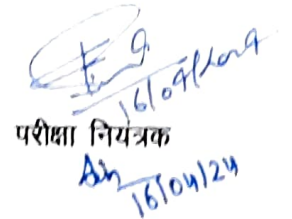 16/04/2024
परीक्षा नियंत्रक
16/04/24